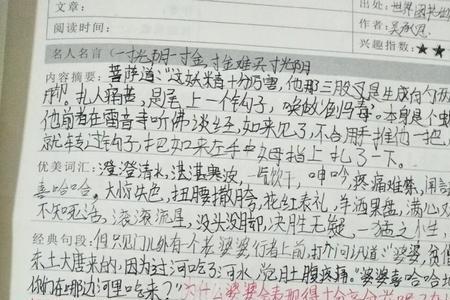 文章：
出处：世界图书出
阅读时间：
作者：吴承恩
兴趣指数：★★
名人名言 一寸光阴一寸金，寸金难买寸光阴
内容摘要：菩萨道：“这妖精十分厉害，他那三股叉是生成的
脚。扎人痛甚，是尾上一个钩子，唤做‘倒马毒’。本身是个
他前者在雷音寺听佛谈经，如来见了，不合用手推他一把，
就转过钩子，把如来左手中拇指上扎了一下。
优美词汇：澄澄清水，湛湛寒波，一气饮干，呻吟，疼痛难禁，
喜哈哈。大惊失色，扭腰撒胯，花红表礼，羊酒果盘，满心
不知死活，滚滚流星，没头没脚，决胜无疑，
经典句段：但只见门儿外有个老婆婆行者上前，打个问讯道：“婆婆，贫僧
东土大唐来的，因为过河吃了河水，觉肚腹疼痛。”婆婆喜哈哈地
你们在那边河里吃来？”为什么婆婆会